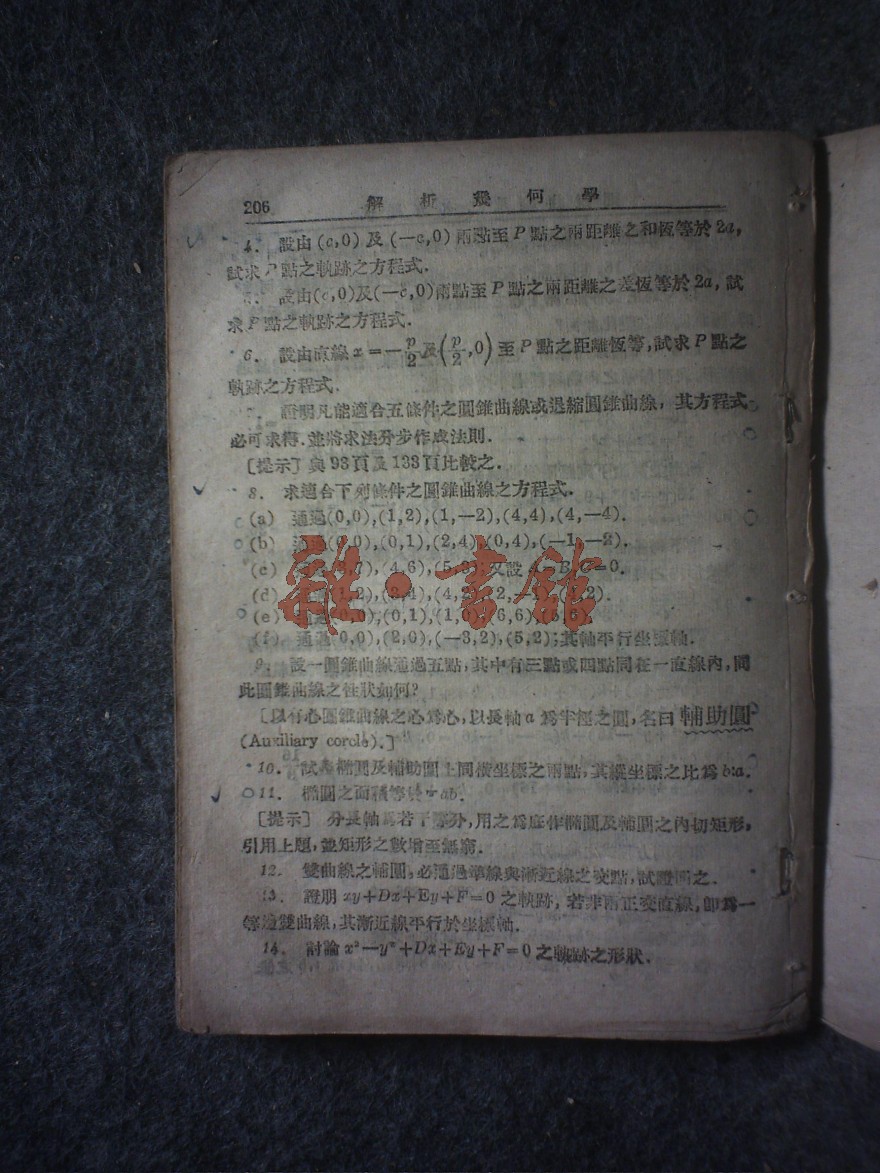 206 解析幾何學
4. 設由(c,0)及(—c,0)兩點至P點之兩距離之和恆等於2a,
試求P點之軌跡之方程式.
5. 設由(c,0)及(—c,0)兩點至P點之兩距離之差恆等於2a,試
求P點之軌跡之方程式.
6. 設由直線x=—p/2及(p/2,0)至P點之距離恆等,試求P點之
軌跡之方程式.
7. 證明凡能適合五條件之圓錐曲線或退縮圓錐曲線,其方程式
必可求得.並將求法分步作成法則.
[提示]與93頁及133頁比較之.
8. 求適合下列條件之圓錐曲線之方程式.
(a) 通過(0,0),(1,2),(1,—2),(4,4),(4,—4).
(b) 通過(0,0),(0,1),(2,4),(0,4),(—1,—2).
(c) 7),(4,6),(5,3);又設 =0.
(d) (1,2),(3,4),(4,2), 2).
(e) 通過(0,0),(0,1),(1,0),(6,6),
(f) 通過(0,0),(2,0),(—3,2),(5,2);其軸平行坐標軸.
雜·書館
9. 設一圓錐曲線通過五點,其中有三點或四點同在一直線內,問
此圓錐曲線之性狀如何?
[以有心圓錐曲線之心為心,以長軸a為半徑之圓,名曰輔助圓
(Auxiliary corcle).]
10. 試 橢圓及輔助圓上同橫坐標之兩點,其縱坐標之比為b:a.
11. 橢圓之面積等於πab.
[提示] 分長軸為若干等分,用之為底作橢圓及輔圓之內切矩形,
引用上題,並矩形之數增至無窮.
12. 雙曲線之輔圓,必通過準線與漸近線之交點,試證明之.
13. 證明xy+Dx+Ey+F=0之軌跡,若非兩正交直線,即為一
等邊雙曲線,其漸近線平行於坐標軸.
14. 討論x²—y²+Dx+Ey+F=0之軌跡之形狀.